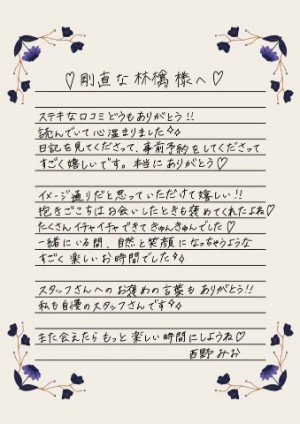 ♡剛直な林檎様へ♡
ステキな口コミどうもありがとう!!
読んでいて心温まりました✧
日記を見てくださって、事前予約をしてくださって
すごく嬉しいです。本当にありがとう♡
イメージ通りだと思っていただけて嬉しい!!
抱きごこちはお会いしたときも褒めてくれたよね♡
たくさんイチャイチャできてきゅんきゅんでした♡
一緒にいる間、自然と笑顔になっちゃうような
すごく楽しいお時間でした✧
スタッフさんへのお褒めの言葉もありがとう!!
私も自慢のスタッフさんです✧
また会えたらもっと楽しい時間にしようね♡
西野みお